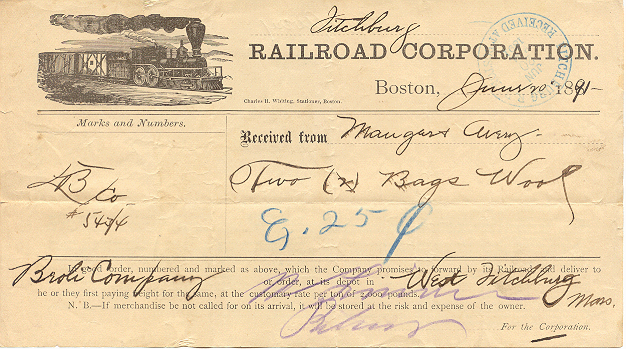 Fitchburg
RAILROAD CORPORATION.
Boston, June 20 1891-
RECEIVED AT
Charles H. Whiting, Stationer, Boston.
Marks and Numbers.
Received from Mauger & Avery.
B Co
Two (2) Bags Wool
G. 25 ¢
In good order, numbered and marked as above, which the Company promises to forward by its Railroad and deliver to
Broli Company or order, at its depot in West Fitchburg Mass.
he or they first paying freight for the same, at the customary rate per ton of 2,000 pounds.
N. B.—If merchandise be not called for on its arrival, it will be stored at the risk and expense of the owner.
For the Corporation.